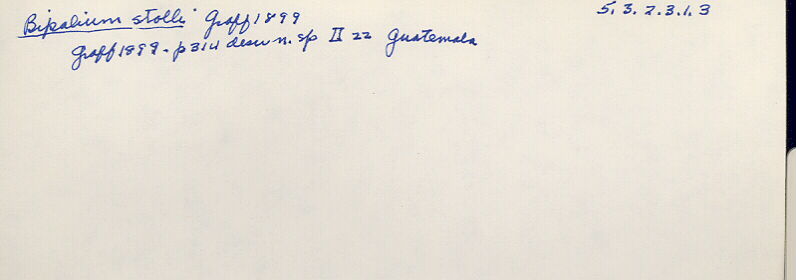 Bipalium stolli Graff 1899 5.3.2.3.1.3
Graff 1899. p314 descr n. sp II 22 Guatemala